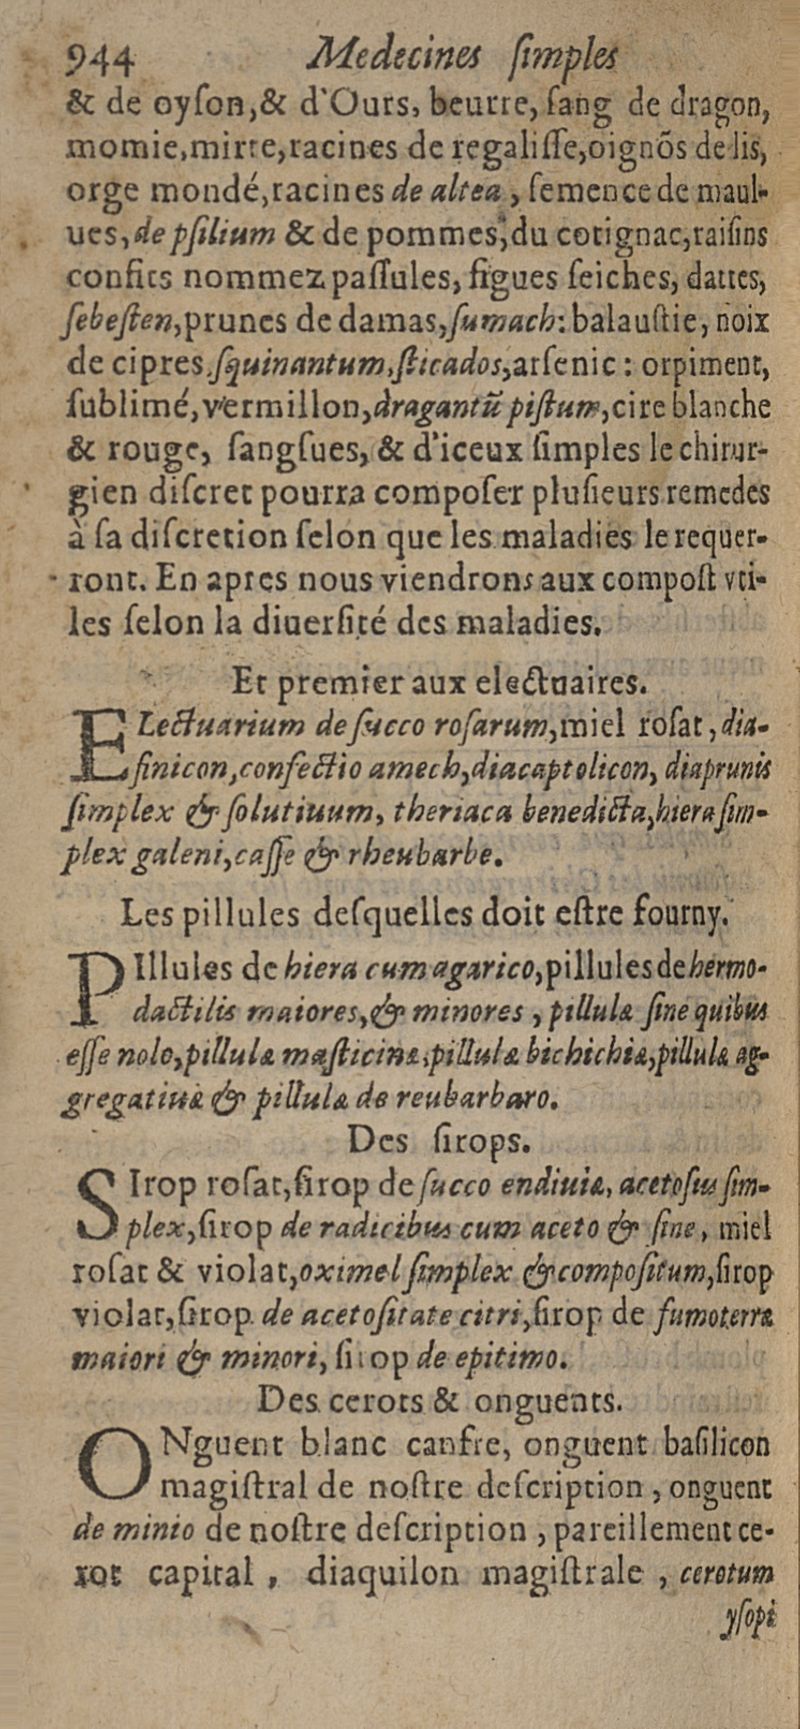 944 Medecines ſimples
& de oyſon,& d'Ours, beurre, ſang de dragon,
momie,mirre,racines de regaliſſe,oignõs de lis,
orge mondé,racines de altea, ſemence de maul-
ues,de pſilium & de pommes,du cotignac,raiſins
confits nommez paſſules, figues ſeiches, dattes,
ſebeſten,prunes de damas,ſumach: balauſtie, noix
de cipres.ſquinantum,ſticados,arſenic : orpiment,
ſublimé,vermillon,dragantũ piſtum,cire blanche
& rouge, ſangſues, & d'iceux ſimples le chirur-
gien diſcret pourra compoſer pluſieurs remedes
à ſa diſcretion ſelon que les maladies le requer-
ront. En apres nous viendrons aux compoſt vti-
les ſelon la diuerſité des maladies.
Et premier aux electuaires.
ELectuarium de ſucco roſarum,miel roſat, dia-
finicon,confectio amech,diacaptolicon, diaprunis
ſimplex & ſolutiuum, theriaca benedicta,hiera ſim-
plex galeni,caſſe & rheubarbe.
Les pillules deſquelles doit eſtre fourny.
PIllules de hiera cum agarico,pillules de hermo-
dactilis maiores,& minores, pillulæ ſine quibus
eſſe nolo,pillulæ maſticinæ,pillulæ bichichiæ,pillulæ ag-
gregatiuæ & pillulæ de reubarbaro.
Des ſirops.
SIrop roſat,ſirop de ſucco endiuiæ, acetoſus ſim-
plex,ſirop de radicibus cum aceto & ſine, miel
roſat & violat,oximel ſimplex & compoſitum,ſirop
violat,ſirop de acetoſitate citri,ſirop de fumoterræ
maiori & minori, ſirop de epitimo.
Des cerots & onguents.
ONguent blanc canfre, onguent baſilicon
magiſtral de noſtre deſcription, onguent
de minio de noſtre deſcription, pareillement ce-
rot capital, diaquilon magiſtrale, cerotum
yſopi